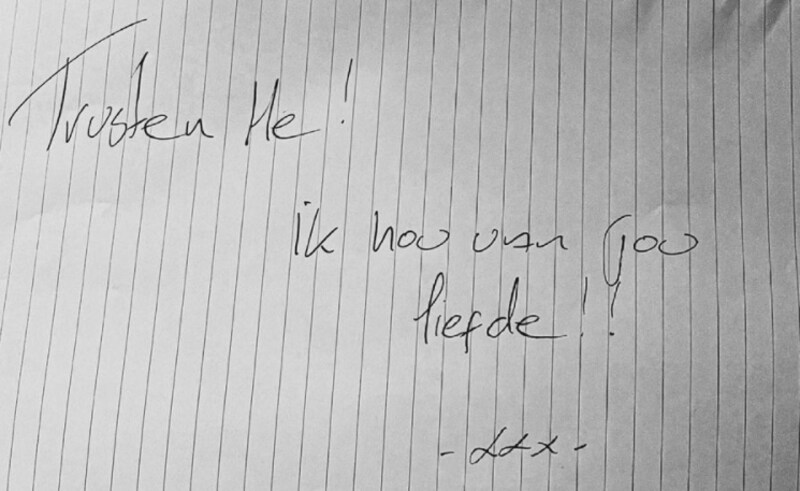 Trusten Me!
ik hou van jou
liefde!!
- xxx -